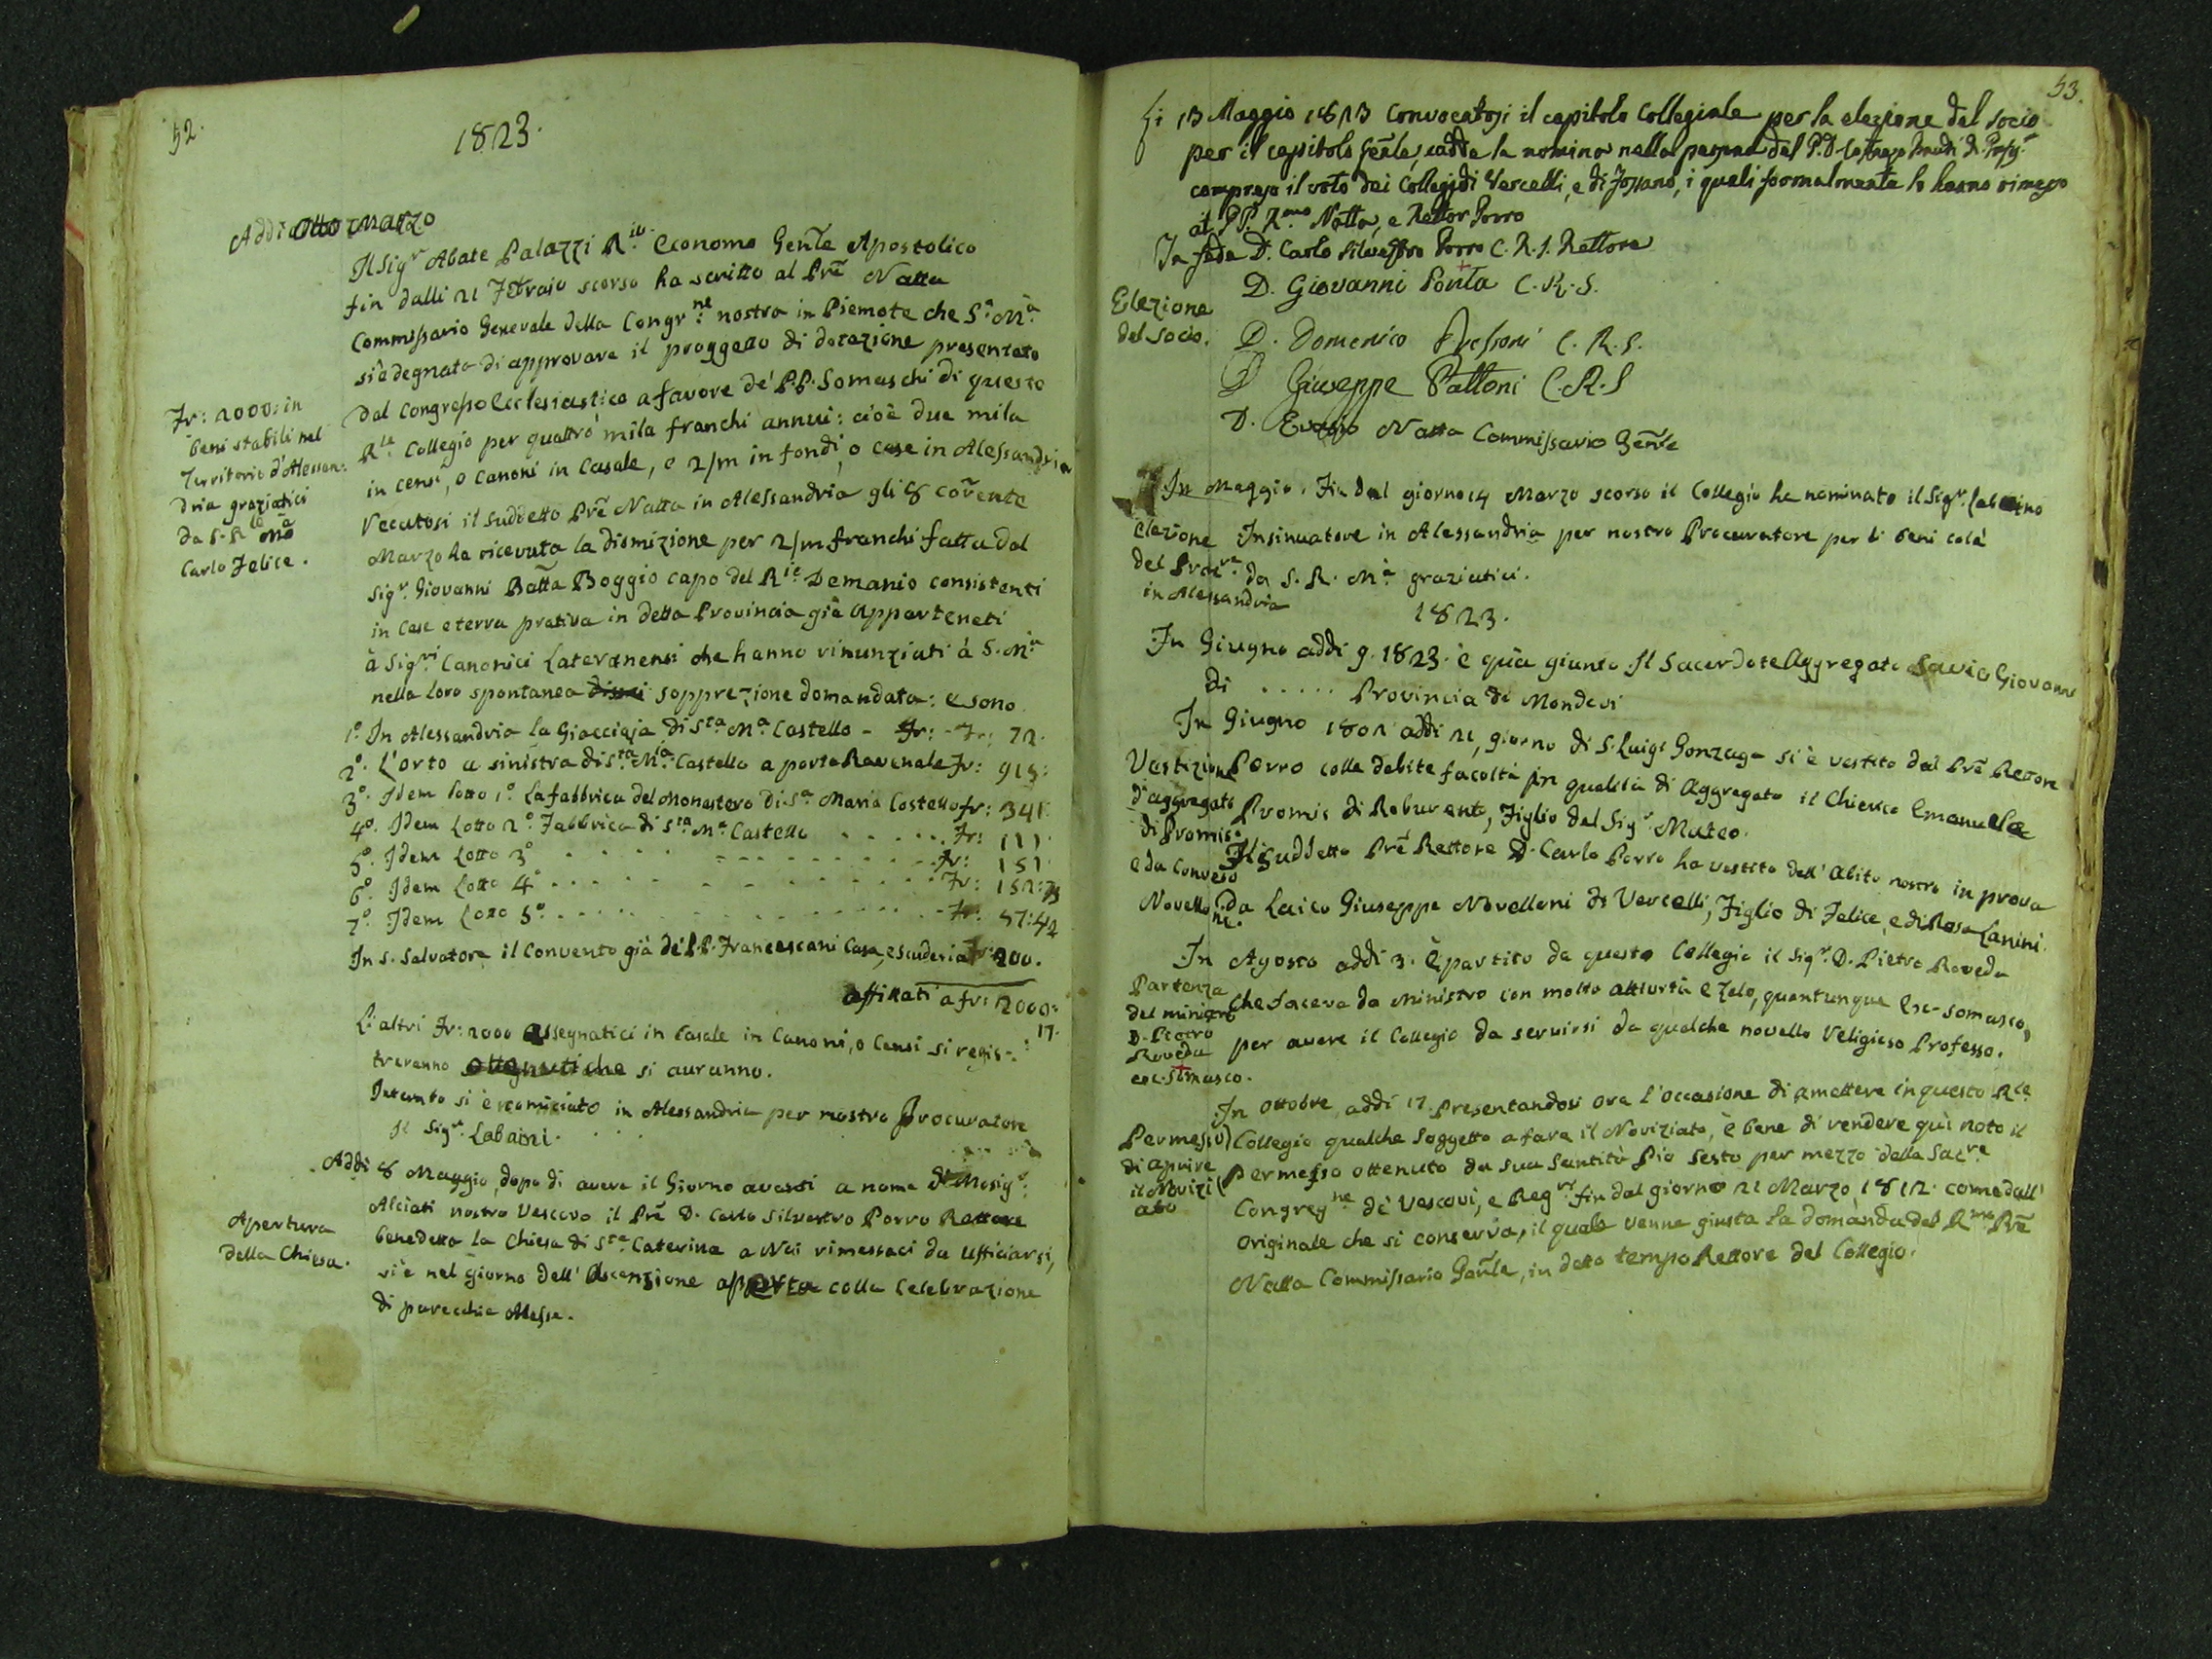 52.
1823.
Addi otto Marzo
Il Sigr Abate Palazzi R.le Economo Genle Apostolico
fin dalli 21 Febraio scorso ha scritto al Prē Natta
Commissario Generale della Congr.ne nostra in Piemote che S.a M.a
si è degnata di approvare il proggetto di dotazione presentato
dal Congresso Ecclesiastico a favore de' P.P. Somaschi di questo
R.le Collegio per quattro mila franchi annui: cioè due mila
in censi, o Canoni in Casale, e 2/m in fondi, o case in Alessandria
Fr: 2000: in
beni stabili nel
Territorio d'Alessan-
dria graziatici
da S. R.le Mā
Carlo Felice.
Recatosi il suddetto Prē Natta in Alessandria gli 8 corente
Marzo ha ricevuta la dismizione per 2/m franchi fatta dal
Sigr. Giovanni Batta Boggio capo del R.le Demanio consistenti
in case e terra prativa in detta Provincia già Apparteneti
à Sig.ri Canonici Lateranensi che hanno rinunziati à S. M.a
nella loro spontanea soppressione domandata: e sono
1.o In Alessandria la Giacciaja di S.ta M.a Castello - Fr: - Fr: 72.
2.o L'orto a sinistra di S.ta M.ia Castello a porta Ravenale Fr: 915:
3.o Idem lotto 1.o La fabbrica del Monastero di S.a Maria Castello fr: 341:
4.o Idem Lotto 2.o Fabbrica di S.ta M.a Castello . . . . . . Fr: 111.
5.o Idem Lotto 3.o . . . . . . Fr: 151.
6.o Idem Lotto 4.o . . . . . . Fr: 152:75
7.o Idem Lotto 5.o . . . . . . Fr: 57:42
In S. Salvatore il Convento già de' P.P. Francescani Casa, e scuderia Fr: 200.
affittati a fr: 2000:
17.
Li altri Fr: 2000 assegnatici in Casale in Canoni, o Censi si regis-
treranno ottenuti che si avranno.
Intanto si è in Alessandria per nostro Procuratore
il Sigr. Labaini.
Addi 8 Maggio, dopo di avere il Giorno avanti a nome di Mosigr.
Alciati nostro Vescovo il Prē D. Carlo Silvestro Porro Rettore
benedetta la Chiesa di S.ta Caterina a Noi rimessaci da Ufficiarsi,
si è nel giorno dell' Ascenzione aperta colla Celebrazione
di parecchie Messe.
Apertura
della Chiesa.
53.
Li 13 Maggio 1823 Convocatosi il capitolo Collegiale per la elezione del Socio
per il capitolo Genle, cadde la nomina nella persona del P. D.
compreso il voto dei Collegi di Vercelli, e di Fossano, i quali formalmente lo hanno rimesso
al PP. R.mo Natta, e Rettor Porro
In fede D. Carlo Silvestro Porro C. R. S. Rettore
D. Giovanni Ponta C. R. S.
Elezione
del Socio.
D. Domenico C. R. S.
D Giuseppe Pattoni C. R. S
D. Evasio Natta Commissario Genle
In Maggio. Fin dal giorno 14 Marzo scorso il Collegio ha nominato il Sigr. Labaino
Insinuatore in Alessandria per nostro Procuratore per li beni colà
da S. R. M.a graziatici.
Elezione
del Procre
in Alessandria
1823.
In Giugno addi 9. 1823. è quà giunto Il Sacerdote Aggregato Savio Giovanni
di . . . . . Provincia di Mondovi
In Giugno addi 21, giorno di S. Luigi Gonzaga si è vestito dal Prē Rettore
Porro colle debite facoltà in qualità di Aggregato il Chierico Emanuele
Promis di Roburento, Figlio del Sigr. Mateo.
Vestizione
d'aggregato
di Promis.
e da Converso
Novello
ne.
Il Suddetto Prē Rettore D. Carlo Porro ha vestito dell' Abito nostro in prova
da Laico Giuseppe Novelloni di Vercelli, Figlio di Felice, e di Rosa Lanini.
In Agosto addi 3. È partito da questo Collegio il Sigr. D. Pietro Roveda
che faceva da Ministro con molta attività e Zelo, quantunque Exe-somasco,
per avere il Collegio da servirsi da qualche novello Religioso Professo.
Partenza
del ministro
D. Pietro
Roveda
exe-Somasco.
In Ottobre addi 17. Presentandosi ora l'occasione di amettere in questo R.le
Collegio qualche Soggetto a fare il Noviziato, è bene di rendere quì noto il
Permesso ottenuto da sua Santità Pio Sesto per mezzo della Sacra
Congreg.ne de' Vescovi, e Reg.ri fin dal giorno 21 Marzo 1812. come dall'
Originale che si conserva, il quale venne giusta la domanda del R.mo Prē
Natta Commissario Genle, in detto tempo Rettore del Collegio.
Permesso
di aprire
il Novizi
ato